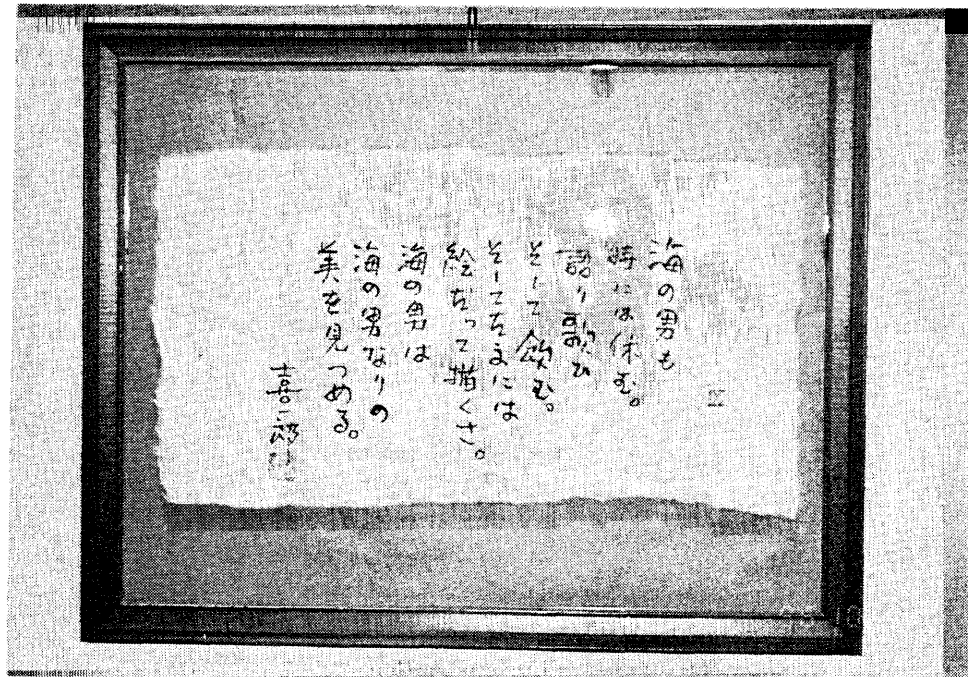 海の男も
時には休む。
語り歌ひ
そして飲む。
そしてたまには
絵だって描くさ。
海の男は
海の男なりの
美を見つめる。
喜一郎